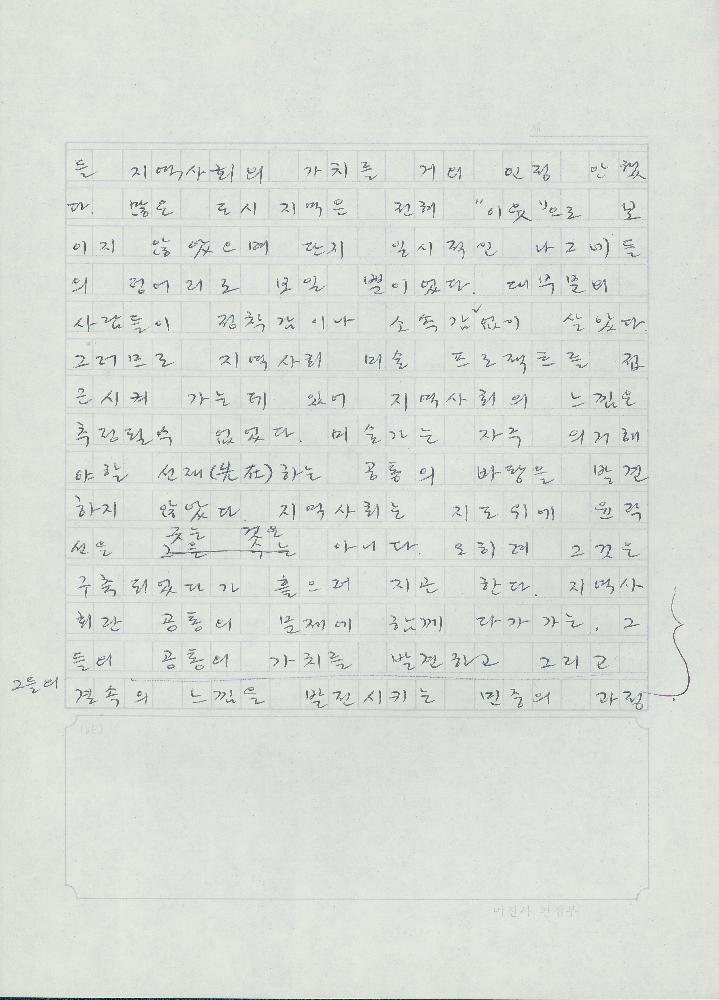 들 지역사회의 가치를 거의 인정 안했
다. 많은 도시 지역은 전혀 "이웃"으로 보
이지 않았으며 단지 일시적인 나그네들
의 덩어리로 보일 뿐이었다. 대부분의
사람들이 정착감이나 소속감 없이 살았다.
그러므로 지역사회 미술 프로젝트를 접
근시켜 가는데 있어 지역사회의 느낌은
추정될 수 없었다. 미술가는 자주 의거해
야할 선재(先在)하는 공통의 바탕을 발견
하지 않았다. 지역사회는 지도위에 윤곽
긋는 것은
선을 그을 수는 아니다. 오히려 그것은
구축되었다가 흩으러 지곤 한다. 지역사
회란 공통의 문제에 함께 다가가는, 그
들의 공통의 가치를 발견하고 그리고
그들의 결속의 느낌을 발전시키는 민중의 과정